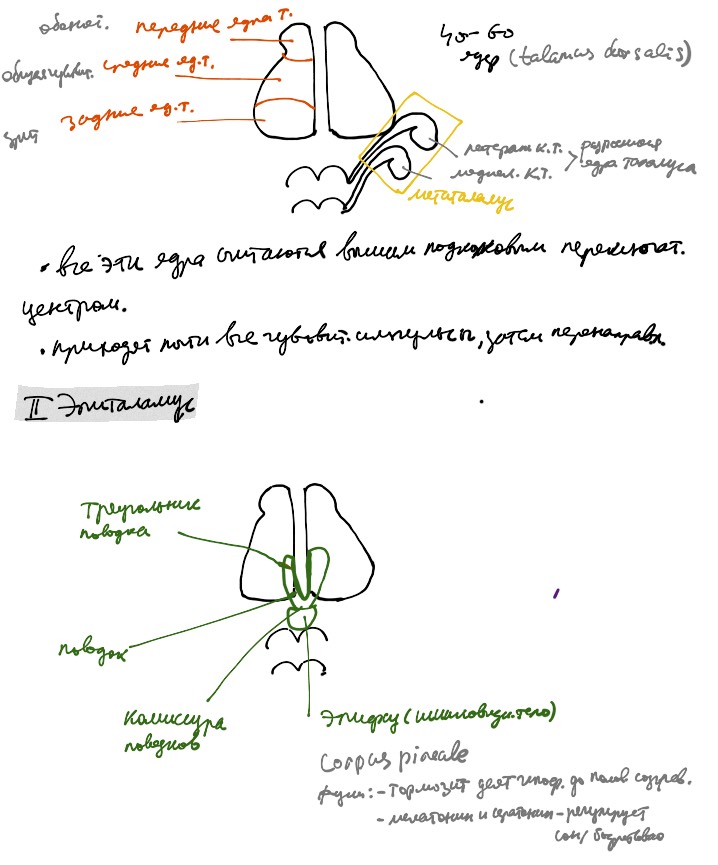 обонят. передние ядра т.
40-60
ядер (talamus dorsalis)
общая чувств. средние яд. т.
зрит задние яд. т.
латерал к.т.
медиал. к.т.
ядра таламуса
метаталамус
• все эти ядра считаются высшим подкорковым переключат.
центром.
• приходят почти все чувствит. импульсы, затем перенаправл.
II Эпиталамус
Треугольник
поводка
поводок
Комиссура
поводков
Эпифиз (шишковидн. тело)
Corpus pineale
функ: - тормозит деят гипоф. до полов созрев.
- мелатонин и серотонин - регулирует
сон/бодрствов